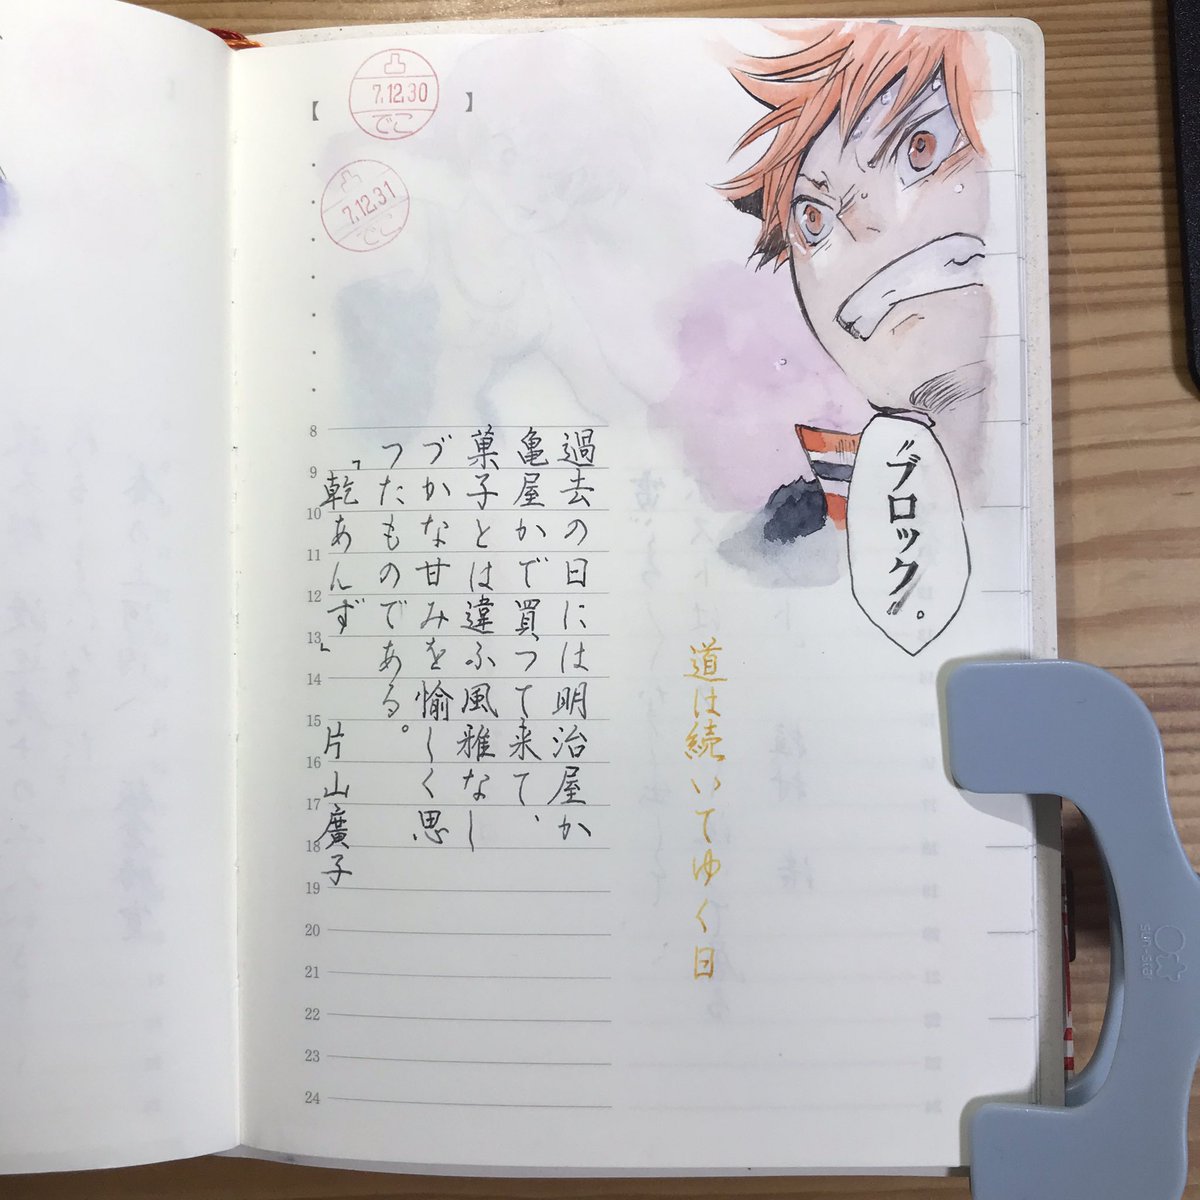 凸
7.12.30
でこ
凸
7.12.31
でこ
【 】
〝ブロック〟。
道は続いてゆく日
過去の日には明治屋か
亀屋かで買つて来て、
菓子とは違ふ風雅なし
づかな甘みを愉しく思
つたものである。
「乾あんず」 片山廣子
8
9
10
11
12
13
14
15
16
17
18
19
20
21
22
23
24
sun-star